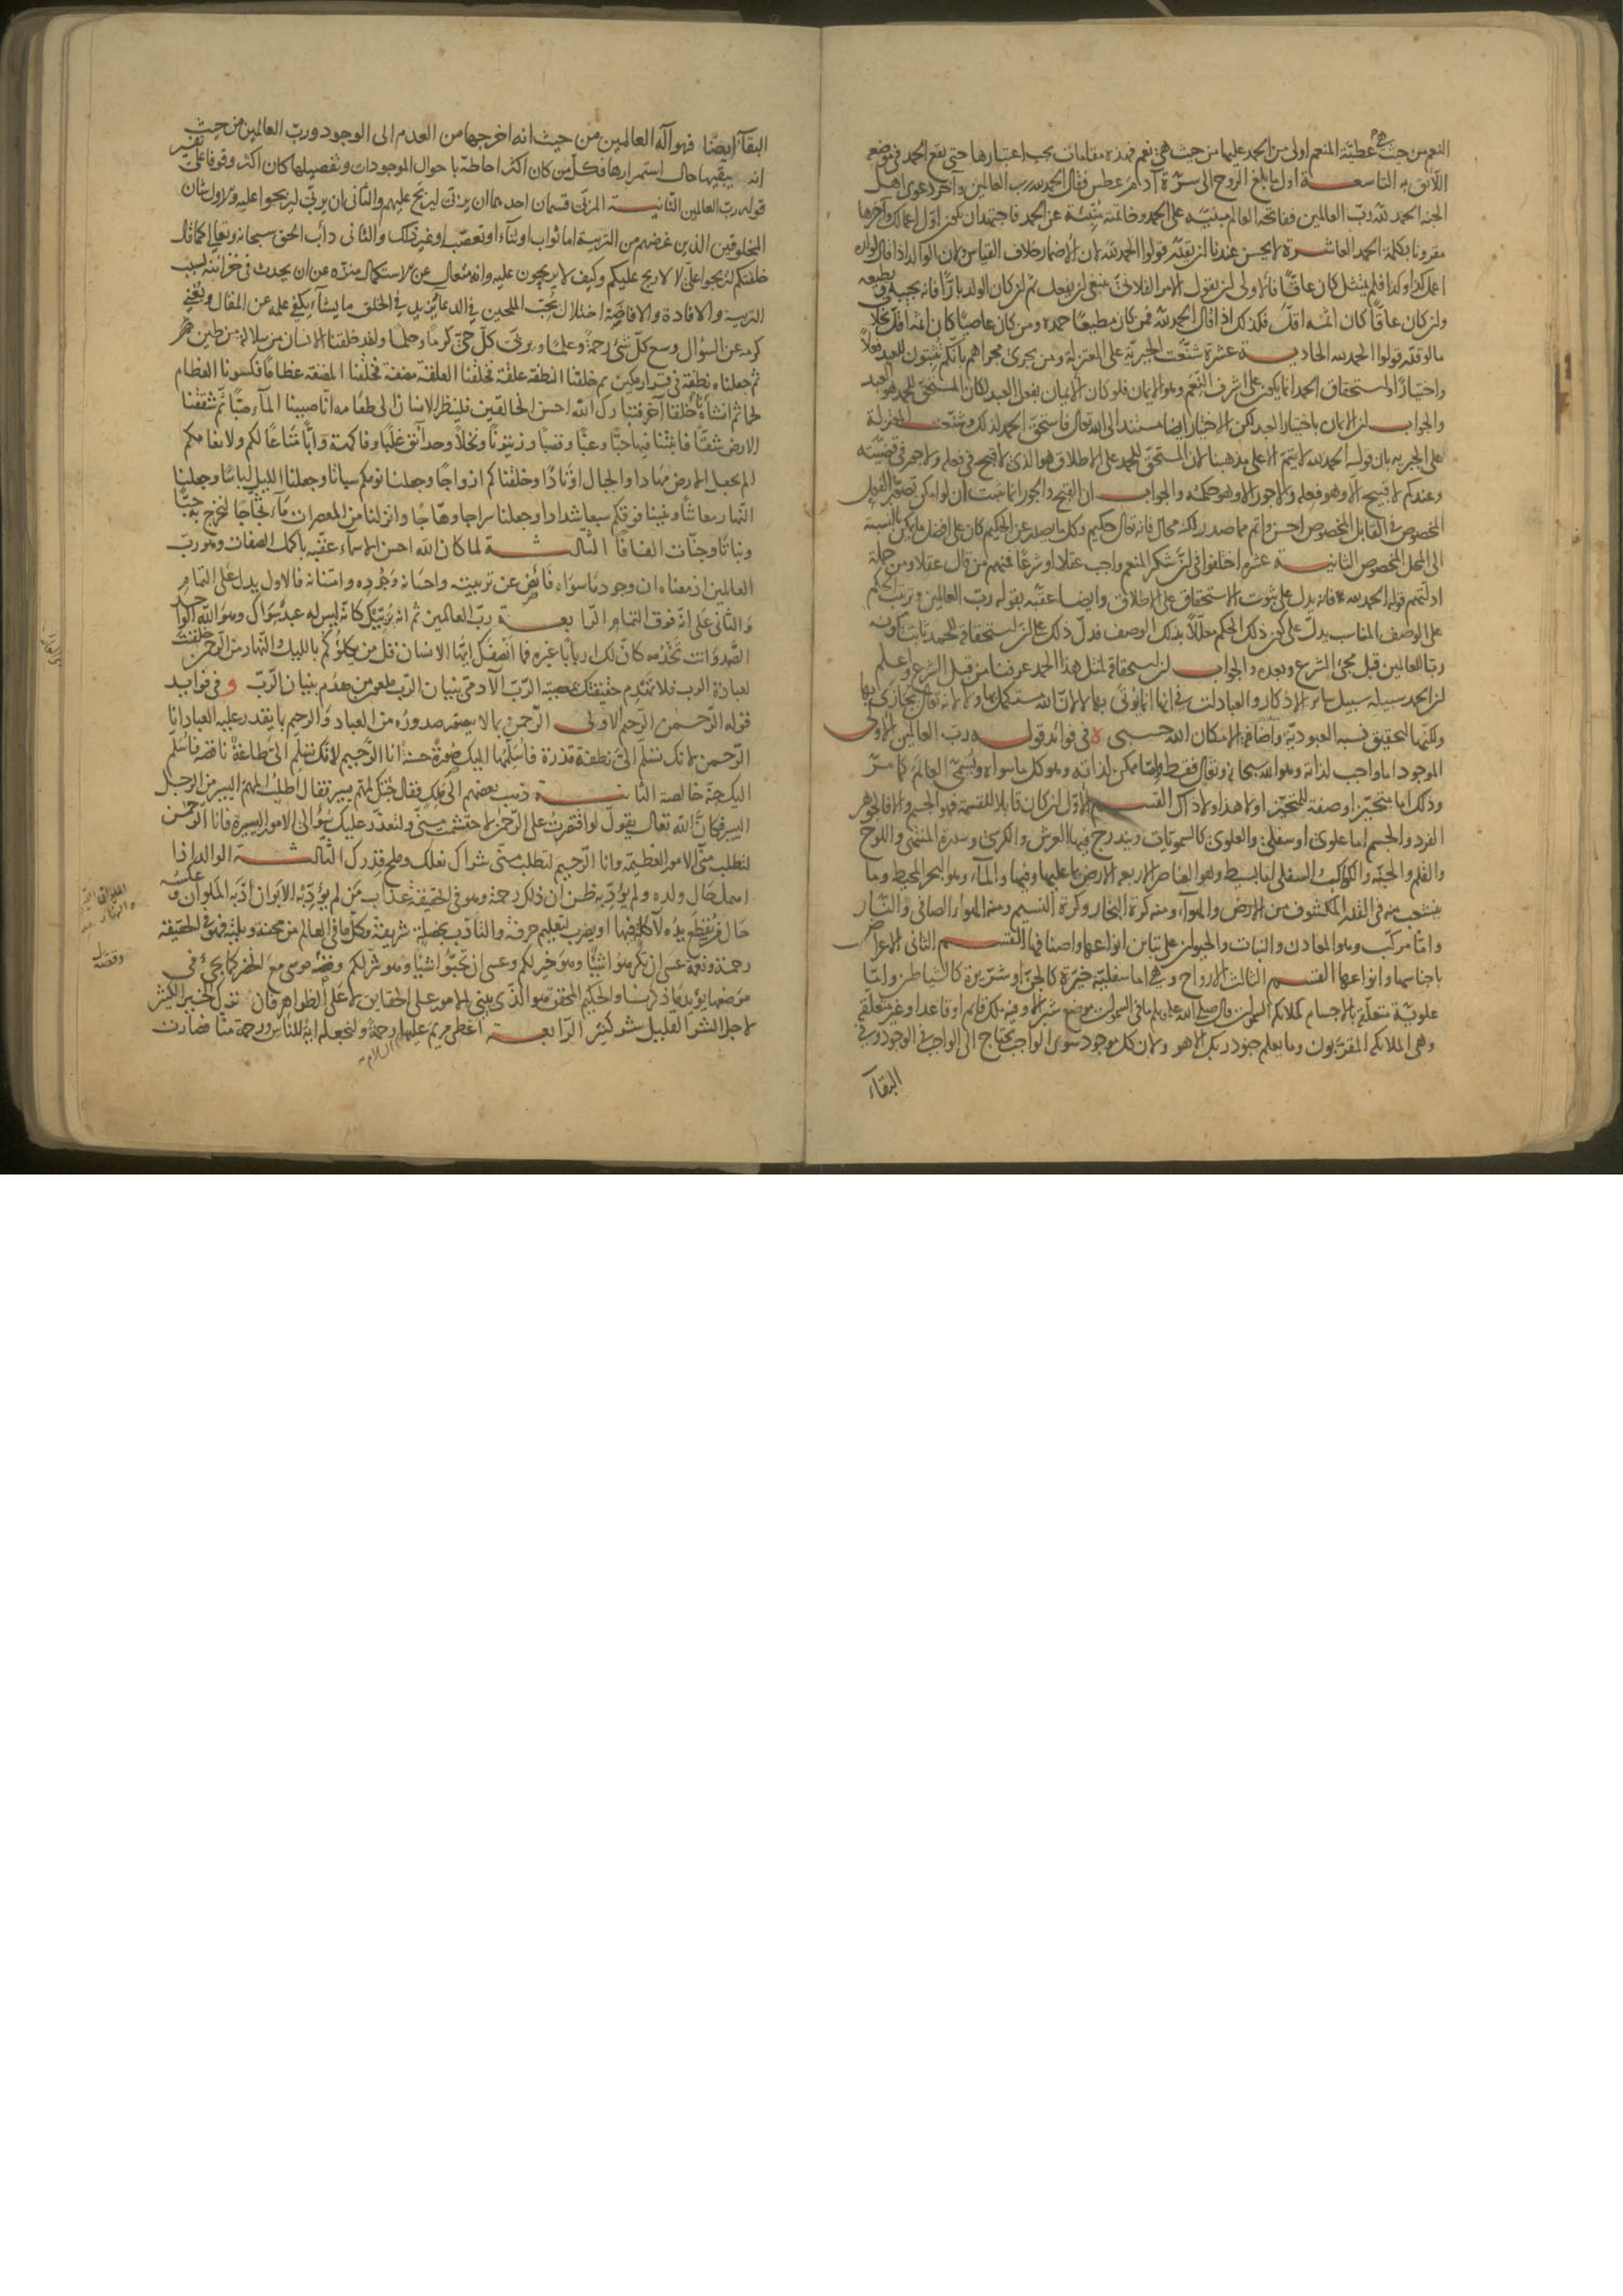 النعم من حيث هي عطية المنعم اولى من الحمد عليها من حيث هي نعم فهذه مقامات يجب اعتبارها حتى يقع الحمد في موضعه
اللائق به التاسعة اول ما بلغ الروح الى سرة آدم عم عطس فقال الحمد لله رب العالمين وآخر دعوى اهل
الجنة الحمد لله رب العالمين ففاتحة العالم مبنية على الحمد وخاتمته مبنية عن الحمد فاجتهد ان يكون اول اعمالك وآخرها
مقرونا بكلمة الحمد العاشرة لا يحسن عندنا ان يقدر قولوا الحمد لله لان الاضمار خلاف القياس ولان الوالد اذا قال لولده
اعمل كذا وكذا فلم يمتثل كان عاقا فالاولى ان يقول الامر الفلاني ينبغي ان يفعل ثم ان كان الولد بارا فانه يجيبه ويطيعه
وان كان عاقا كان اثمه اقل فكذلك اذا قال الحمد لله فمن كان مطيعا حمده ومن كان عاصيا كان اثمه اقل بخلاف
ما لو قدر قولوا الحمد لله الحادية عشرة شنعت الجبرية على المعتزلة ومن يجري مجراهم بانكم تثبتون للعبد فعلا
واختيارا واستحقاق الحمد انما يكون على اشرف النعم وهو الايمان فلو كان الايمان بفعل العبد لكان المستحق للحمد هو العبد
والجواب ان الايمان باختيار العبد لكن الاختيار ايضا مستند الى الله تعالى فاستحق الحمد لذلك وشنعت المعتزلة
على الجبرية بان قوله الحمد لله لا يتم الا على مذهبنا لان المستحق للحمد على الاطلاق هو الذي لا قبيح في فعله ولا جور في قضيته
وعندكم لا قبيح الا وهو فعله ولا جور الا وهو حكمه والجواب ان القبح والجور انما يثبت ان لو امكن تصور الفعل
المخصوص في القابل المخصوص احسن واتم مما صدر لكنه محال فانه تعالى حكيم وكل ما يصدر عن الحكيم كان على افضل ما يمكن بالنسبة
الى المحل المخصوص الثانية عشر اختلفوا في ان شكر المنعم واجب عقلا او شرعا فمنهم من قال عقلا ومن جملة
ادلتهم قوله الحمد لله فانه يدل على ثبوت الاستحقاق على الاطلاق وايضا عقبه بقوله رب العالمين وترتيب الحكم
على الوصف المناسب يدل على كون ذلك الحكم معللا بذلك الوصف فدل ذلك على ان استحقاقه للحمد ثابت بكونه
ربا للعالمين قبل مجئ الشرع وبعده والجواب ان استحقاقه لمثل هذا الحمد عرفنا من قبل الشرع واعلم
ان الحمد سبيله سبيل سائر الاذكار والعبادات في انها انما يؤتى بها لا لان الله مستكمل بها ولا لانه تعالى يجازي بها
ولكنها لتحقيق نسبة العبودية واضافة الامكان الله حسبي ه في فوائد قوله رب العالمين الاولى
الموجود اما واجب لذاته وهو الله سبحانه وتعالى فقط واما ممكن لذاته وهو كل ما سواه ويسمى العالم كما مر
وذلك اما متحيز او صفة للمتحيز او لا هذا ولا ذاك القسم الاول ان كان قابلا للقسمة فهو الجسم والا فالجوهر
الفرد والجسم اما علوي او سفلي والعلوي كالسموات ويندرج فيها العرش والكرسي وسدرة المنتهى واللوح
والقلم والجنة والكواكب السفلي اما بسيط وهو العناصر الاربعة الارض بما عليها وفيها والماء وهو البحر المحيط وما
ينشعب منه في القدر المكشوف من الارض والهواء ومنه كرة البخار وكرة النسيم ومنه الهواء الصافي والنار
واما مركب وهو المعادن والنبات والحيوان على تباين انواعها واصنافها القسم الثاني الاعراض
باجناسها وانواعها القسم الثالث الارواح وهي اما سفلية خيرة كالجن او شريرة كالشياطين واما
علوية متعلقة بالاجسام كملائكة السموات قال صلى الله عليه وسلم ما في السموات موضع شبر الا وفيه ملك قائم او قاعد او غير متعلقة
وهي الملائكة المقربون وما يعلم جنود ربك الا هو ولان كل موجود سوى الواجب يحتاج الى الواجب في الوجود وفي
البقاء
البقاء ايضا فهو اله العالمين من حيث انه اخرجها من العدم الى الوجود ورب العالمين من حيث
انه يبقيها حال استمرارها فكل من كان اكثر احاطة باحوال الموجودات وتفصيلها كان اكثر وقوفا على تفسير
قوله رب العالمين الثانية المربي قسمان احدهما ان يربي ليربح عليهم والثاني ان يربي ليربحوا عليه والاول شان
المخلوقين الذين غرضهم من التربية اما ثواب او ثناء او تعصب او غير ذلك والثاني دأب الحق سبحانه وتعالى كما قال
خلقتكم لتربحوا علي لا لاربح عليكم وكيف لا يربحون عليه وانه متعال عن الاستكمال منزه عن ان يحدث في خزائنه بسبب
التربية والافادة والافاضة اختلال يحب الملحين في الدعاء يزيد في الخلق ما يشاء يكفي علمه عن المقال ويغني
كرمه عن السؤال وسع كل شئ رحمة وعلما ويربي كل حي كرما وحلما ولقد خلقنا الانسان من سلالة من طين
ثم جعلناه نطفة في قرار مكين ثم خلقنا النطفة علقة فخلقنا العلقة مضغة فخلقنا المضغة عظاما فكسونا العظام
لحما ثم انشأناه خلقا آخر فتبارك الله احسن الخالقين فلينظر الانسان الى طعامه انا صببنا الماء صبا ثم شققنا
الارض شقا فانبتنا فيها حبا وعنبا وقضبا وزيتونا ونخلا وحدائق غلبا وفاكهة وابا متاعا لكم ولانعامكم
الم نجعل الارض مهادا والجبال اوتادا وخلقناكم ازواجا وجعلنا نومكم سباتا وجعلنا الليل لباسا وجعلنا
النهار معاشا وبنينا فوقكم سبعا شدادا وجعلنا سراجا وهاجا وانزلنا من المعصرات ماء ثجاجا لنخرج به حبا
ونباتا وجنات الفافا الثالثة لما كان الله احسن الاسماء عقبه باكمل الصفات وهو رب
العالمين اذ معناه ان وجود ما سواه فائض عن تربيته واحسانه وجوده وامتنانه فالاول يدل على التمام
والثاني على انه فوق التمام الرابعة رب العالمين ثم انه يربيك كانه ليس له عبد سواك وهو الله الواحد
الصمد وانت تخدمه كان لك اربابا غيره فما انصفك ايها الانسان قل من يكلؤكم بالليل والنهار من الرحمن خلقت
لعبادة الرب فلا تهدم حقيقتك بمعصية الرب الآدمي بنيان الرب ملعون من هدم بنيان الرب و في فوائد
قوله الرحمن الرحيم الاولى الرحمن بما لا يتصور صدوره من العباد والرحيم بما يقدر عليه العباد انا
الرحمن لانك تسلم الي نطفة قذرة فاسلمها اليك صورة حسنة انا الرحيم لانك تسلم الي طاعة ناقصة فاسلم
اليك جنة خالصة الثانية ذهب بعضهم الى ملك فقال جئتك لمهم يسير فقال اطلب للمهم اليسير من الرجل
اليسير فكان الله تعالى يقول لو اقتصرت على الرحمن لاحتشمت مني ولتعذر عليك سؤالي الامور اليسيرة فانا الرحمن
لتطلب مني الامور العظيمة وانا الرحيم لتطلب مني شراك نعلك وملح قدرك الثالثة الوالد اذا
اهمل حال ولده ولم يؤدبه ظن ان ذلك رحمة وهو في الحقيقة عذاب من لم يؤدبه الابوان ادبه الملوان وعكسه
حال من يقطع يده لآكلة فيها او يضرب لتعليم حرفة والتأدب بخصلة شريفة وكل ما في العالم من محنة وبلية فهو في الحقيقة
رحمة ونعمة عسى ان تكرهوا شيئا وهو خير لكم وعسى ان تحبوا شيئا وهو شر لكم وقصة موسى مع الخضر كما يجئ في
موضعها يؤيد ما ذكرنا والحكيم المحقق هو الذي يبني الامور على الحقايق لا على الظواهر فان ترك الخير الكثير
لاجل الشر القليل شر كثير الرابعة اعطى مريم عليها السلام رحمة ولنجعله آية للناس ورحمة منا فصارت
الملوان الليل والنهار